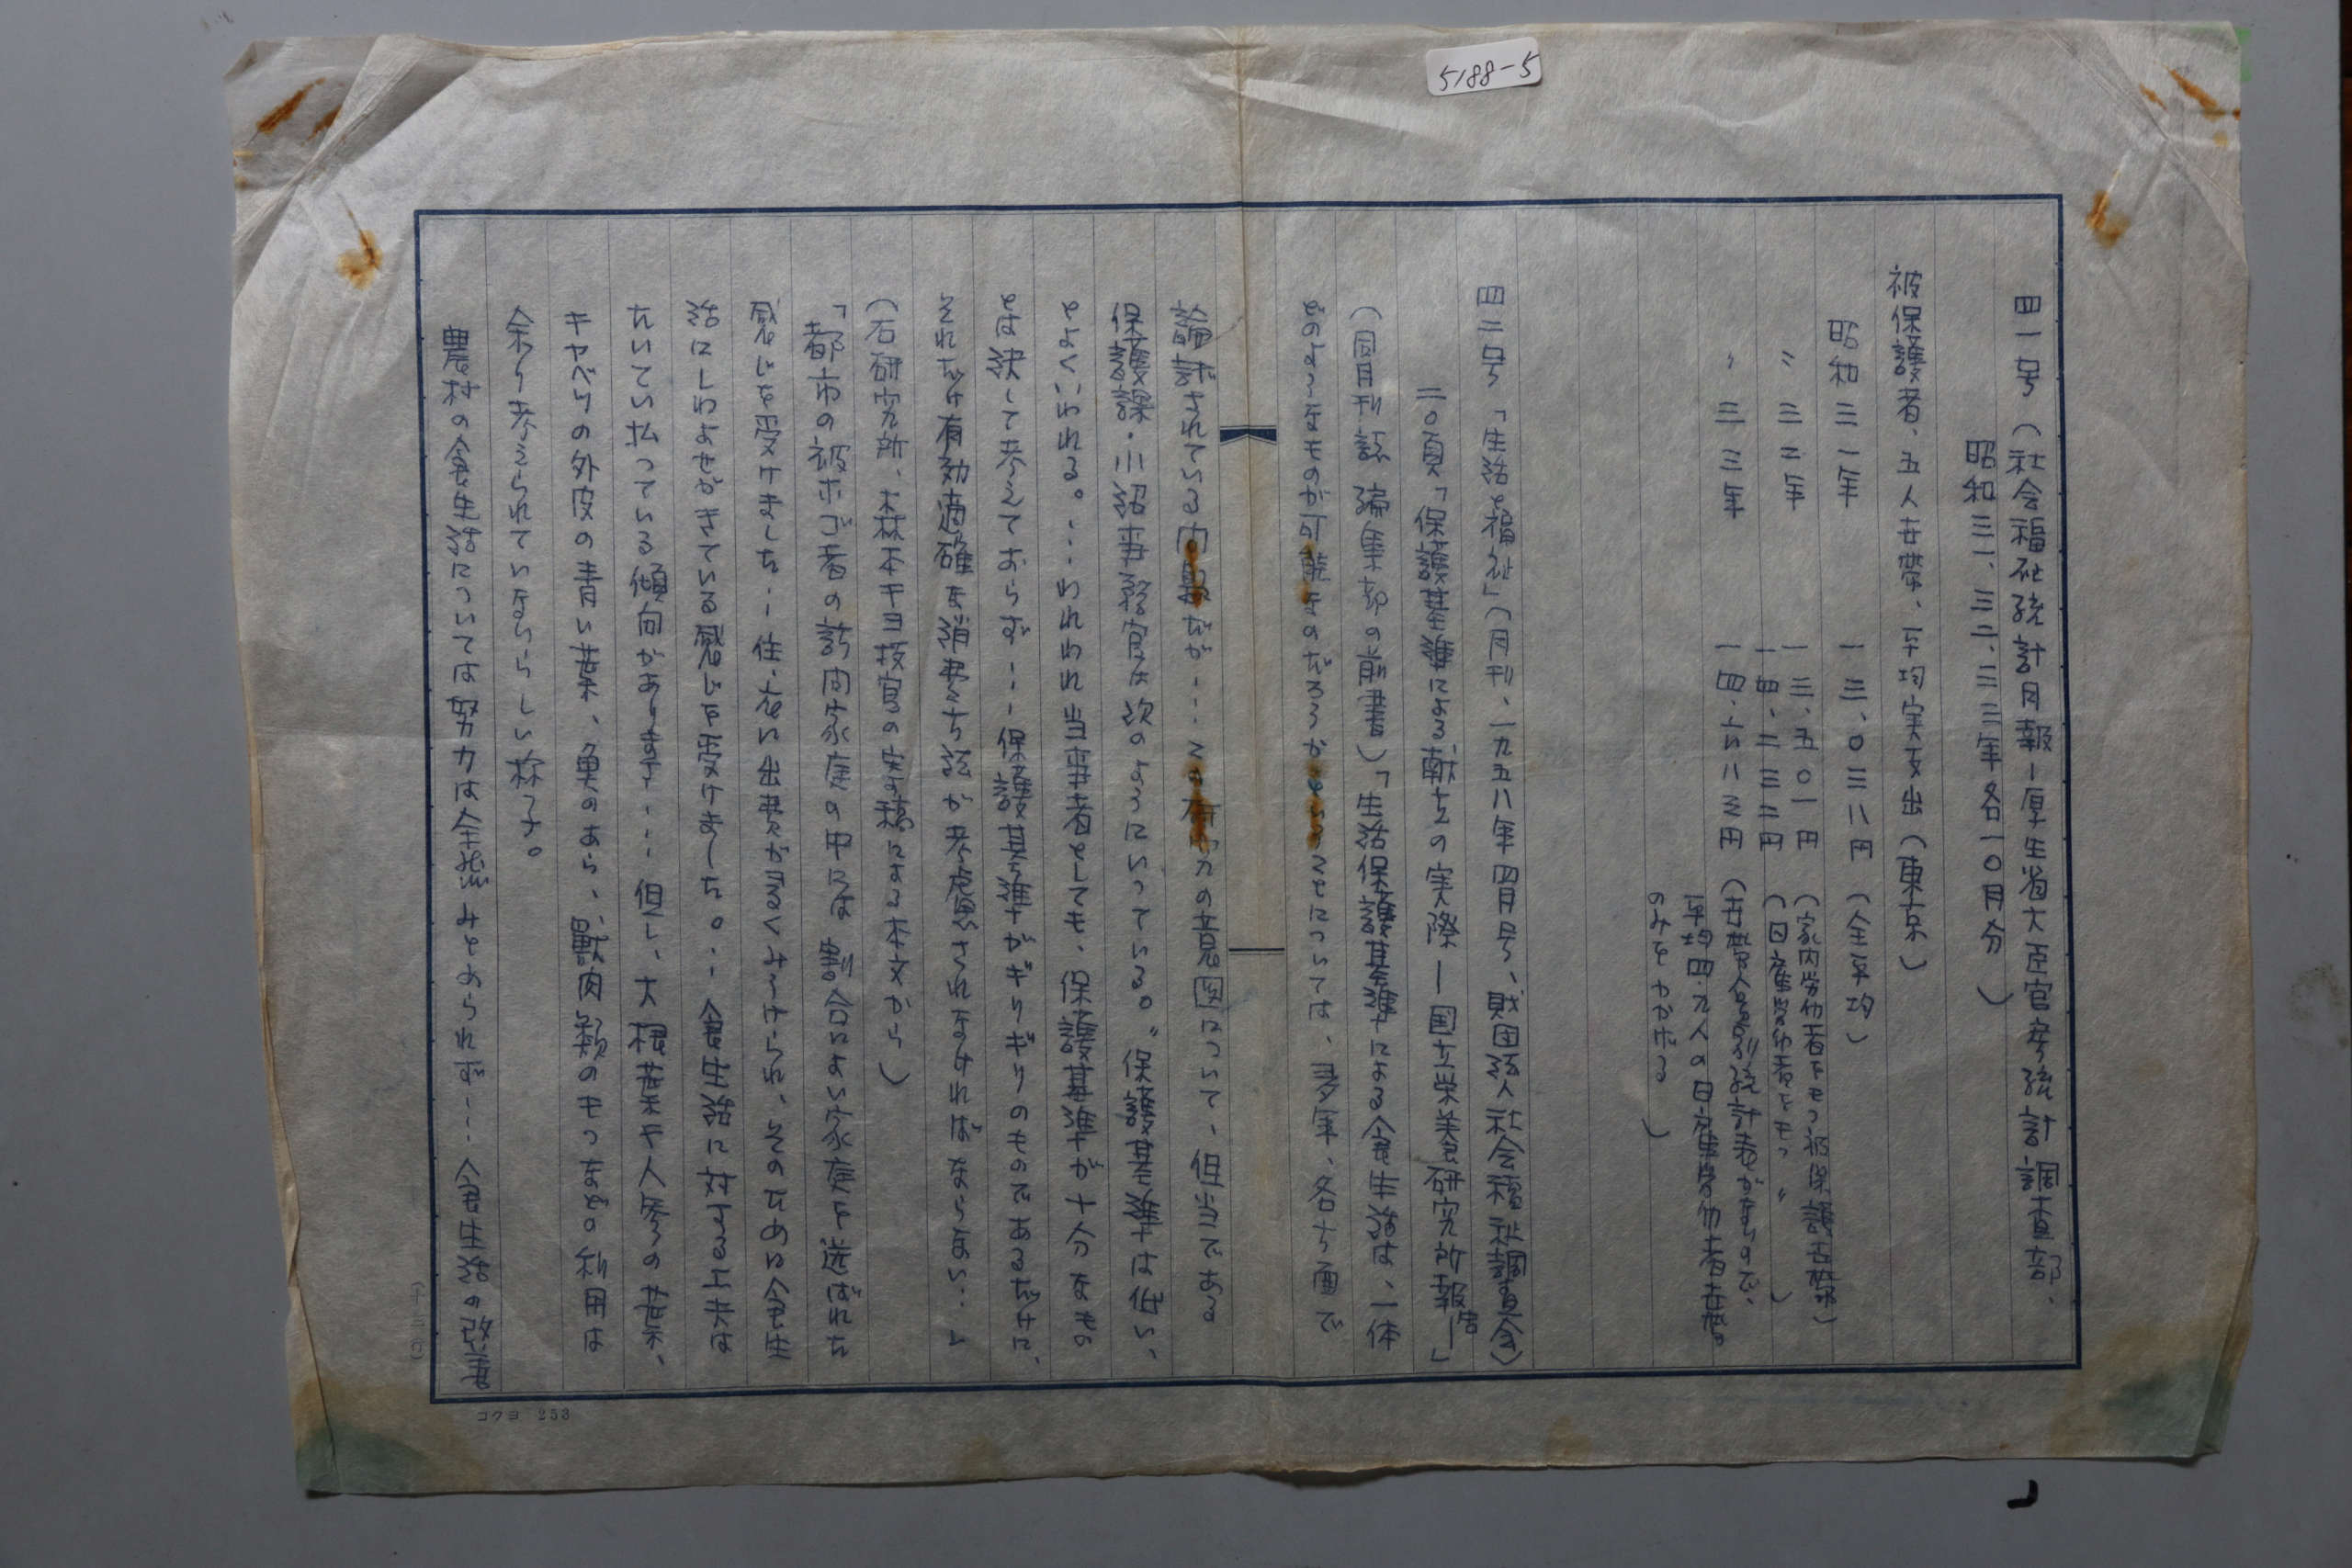 5188-5
四一号（社会福祉統計月報ー厚生省大臣官房統計調査部、
昭和三一、三二、三三年各一〇月分）
被保護者、五人世帯、平均実支出（東京）
昭和三一年　一三、〇三八円（全平均）
〃三二年　一三、五〇一円（家内労仂者ヲモつ被保護世帯）
一四、二三二円（日雇労仂者ヲモつ〃）
〃三三年　一四、六八三円（世帯人員別統計表がないので、
平均四・九人の日雇労仂者世帯
のみをカカゲる）
四二号「生活と福祉」（月刊、一九五八年四月号、財団法人社会福祉調査会）
二〇頁「保護基準による献立の実際ー国立栄養研究所報告ー」
（同月刊誌編集部の前書）「生活保護基準による食生活は、一体
どのようなものが可能なのだろうか
ということについては、多年、各方面で
論議されている問題だが…この研究の意図について、但当である
保護課・小沼事務官は次のようにいっている。〝保護基準は低い、
とよくいわれる。…われわれ当事者としても、保護基準が十分なもの
とは決して考えておらず…保護基準がギリギリのものであるだけに、
それだけ有効適確な消費方法が考慮されなければならない…」
（石研究所、森本キヨ技官の実稿による本文から）
「都市の被ホゴ者の訪問家庭の中には割合によい家庭ヲ選ばれた
感じを受けました…住、衣い出費がまるくみうけられ、そのために食生
活にしわよせがきている感じヲ受けました。…食生活に対する工夫は
たいてい払っている傾向があります…但し、大根葉ヤ人参の葉、
キャベツの外皮の青い葉、魚のあら、獣肉類のモつなどの利用は
余り考えられていないらしい様子。
農村の食生活については努力は全然みとめられず…食生活の改善
コクヨ 253